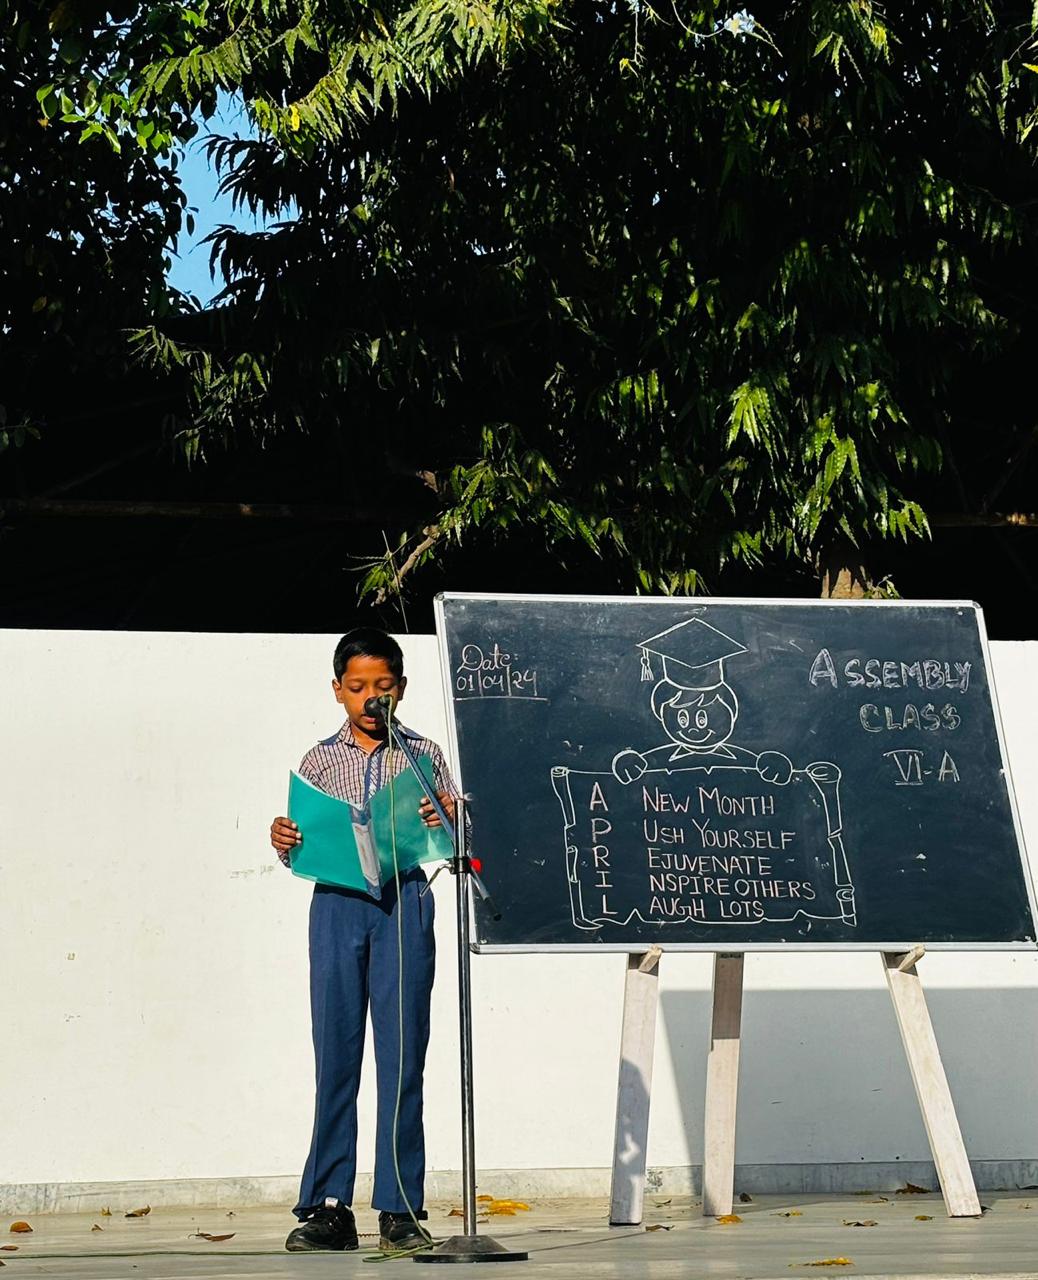 Date:
01/04/24
ASSEMBLY
CLASS
VI-A
A NEW MONTH
P USH YOURSELF
R EJUVENATE
I NSPIRE OTHERS
L AUGH LOTS